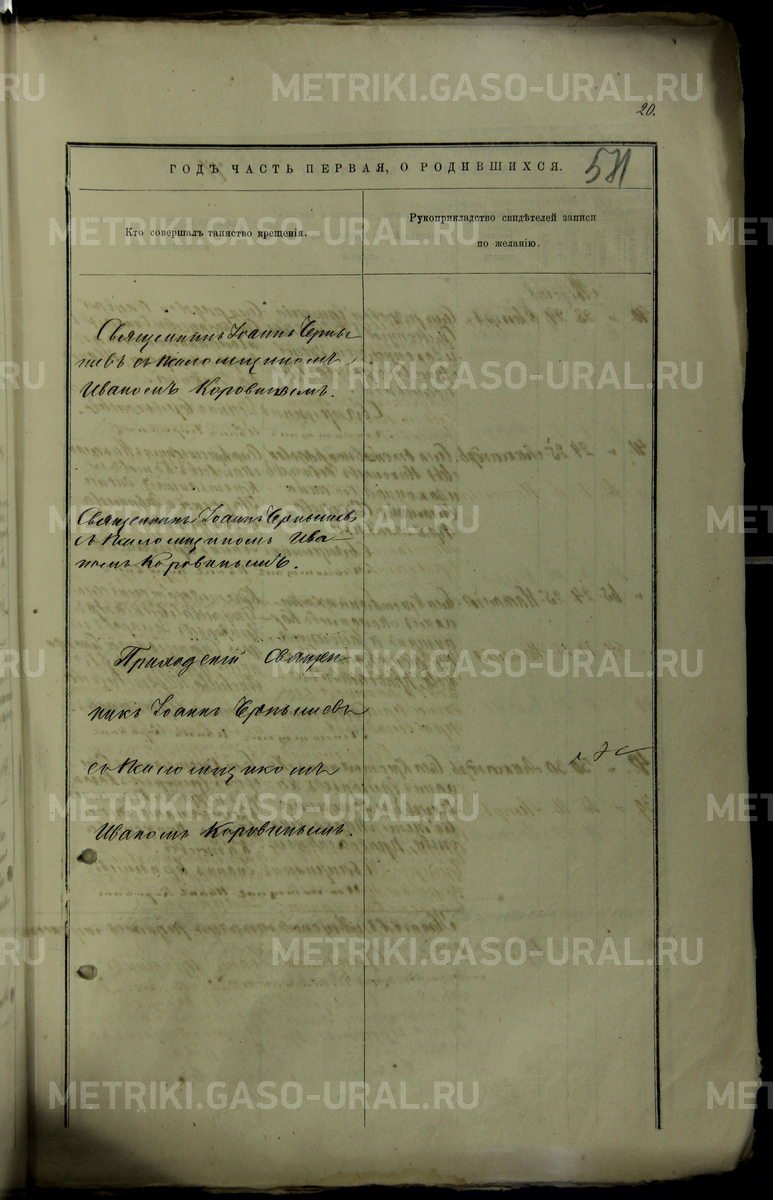 METRIKI.GASO-URAL.RU
20.
ГОДЪ ЧАСТЬ ПЕРВАЯ, О РОДИВШИХСЯ.
Кто совершалъ таинство крещенія.
Рукоприкладство свидѣтелей записи
по желанію.
Священникъ Іоаннъ Черны
шевъ съ псаломщикомъ
Иваномъ Коровинымъ.
Священникъ Іоаннъ Чернышевъ
съ псаломщикомъ Ива
номъ Коровинымъ.
Приходскій Священ
никъ Іоаннъ Чернышевъ
съ псаломщикомъ
Иваномъ Коровинымъ.